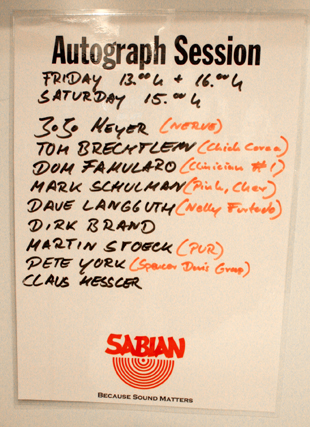 Autograph Session
FRIDAY 13.00 h + 16.00 h
SATURDAY 15.00 h
JOJO MEYER (NERVE)
TOM BRECHTLEIN (Chick Corea)
DOM FAMULARO (Clinician #1)
MARK SCHULMAN (Pink, Cher)
DAVE LANGGUTH (Nelly Furtado)
DIRK BRAND
MARTIN STOECK (PUR)
PETE YORK (Spencer Davis Group)
CLAUS HESSLER
SABIAN
BECAUSE SOUND MATTERS